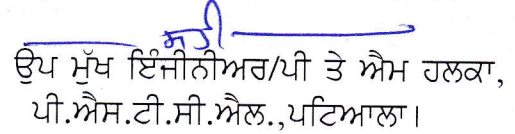 ਸਹੀ
ਉਪ ਮੁੱਖ ਇੰਜੀਨੀਅਰ/ਪੀ ਤੇ ਐਮ ਹਲਕਾ,
ਪੀ.ਐਸ.ਟੀ.ਸੀ.ਐਲ.,ਪਟਿਆਲਾ।